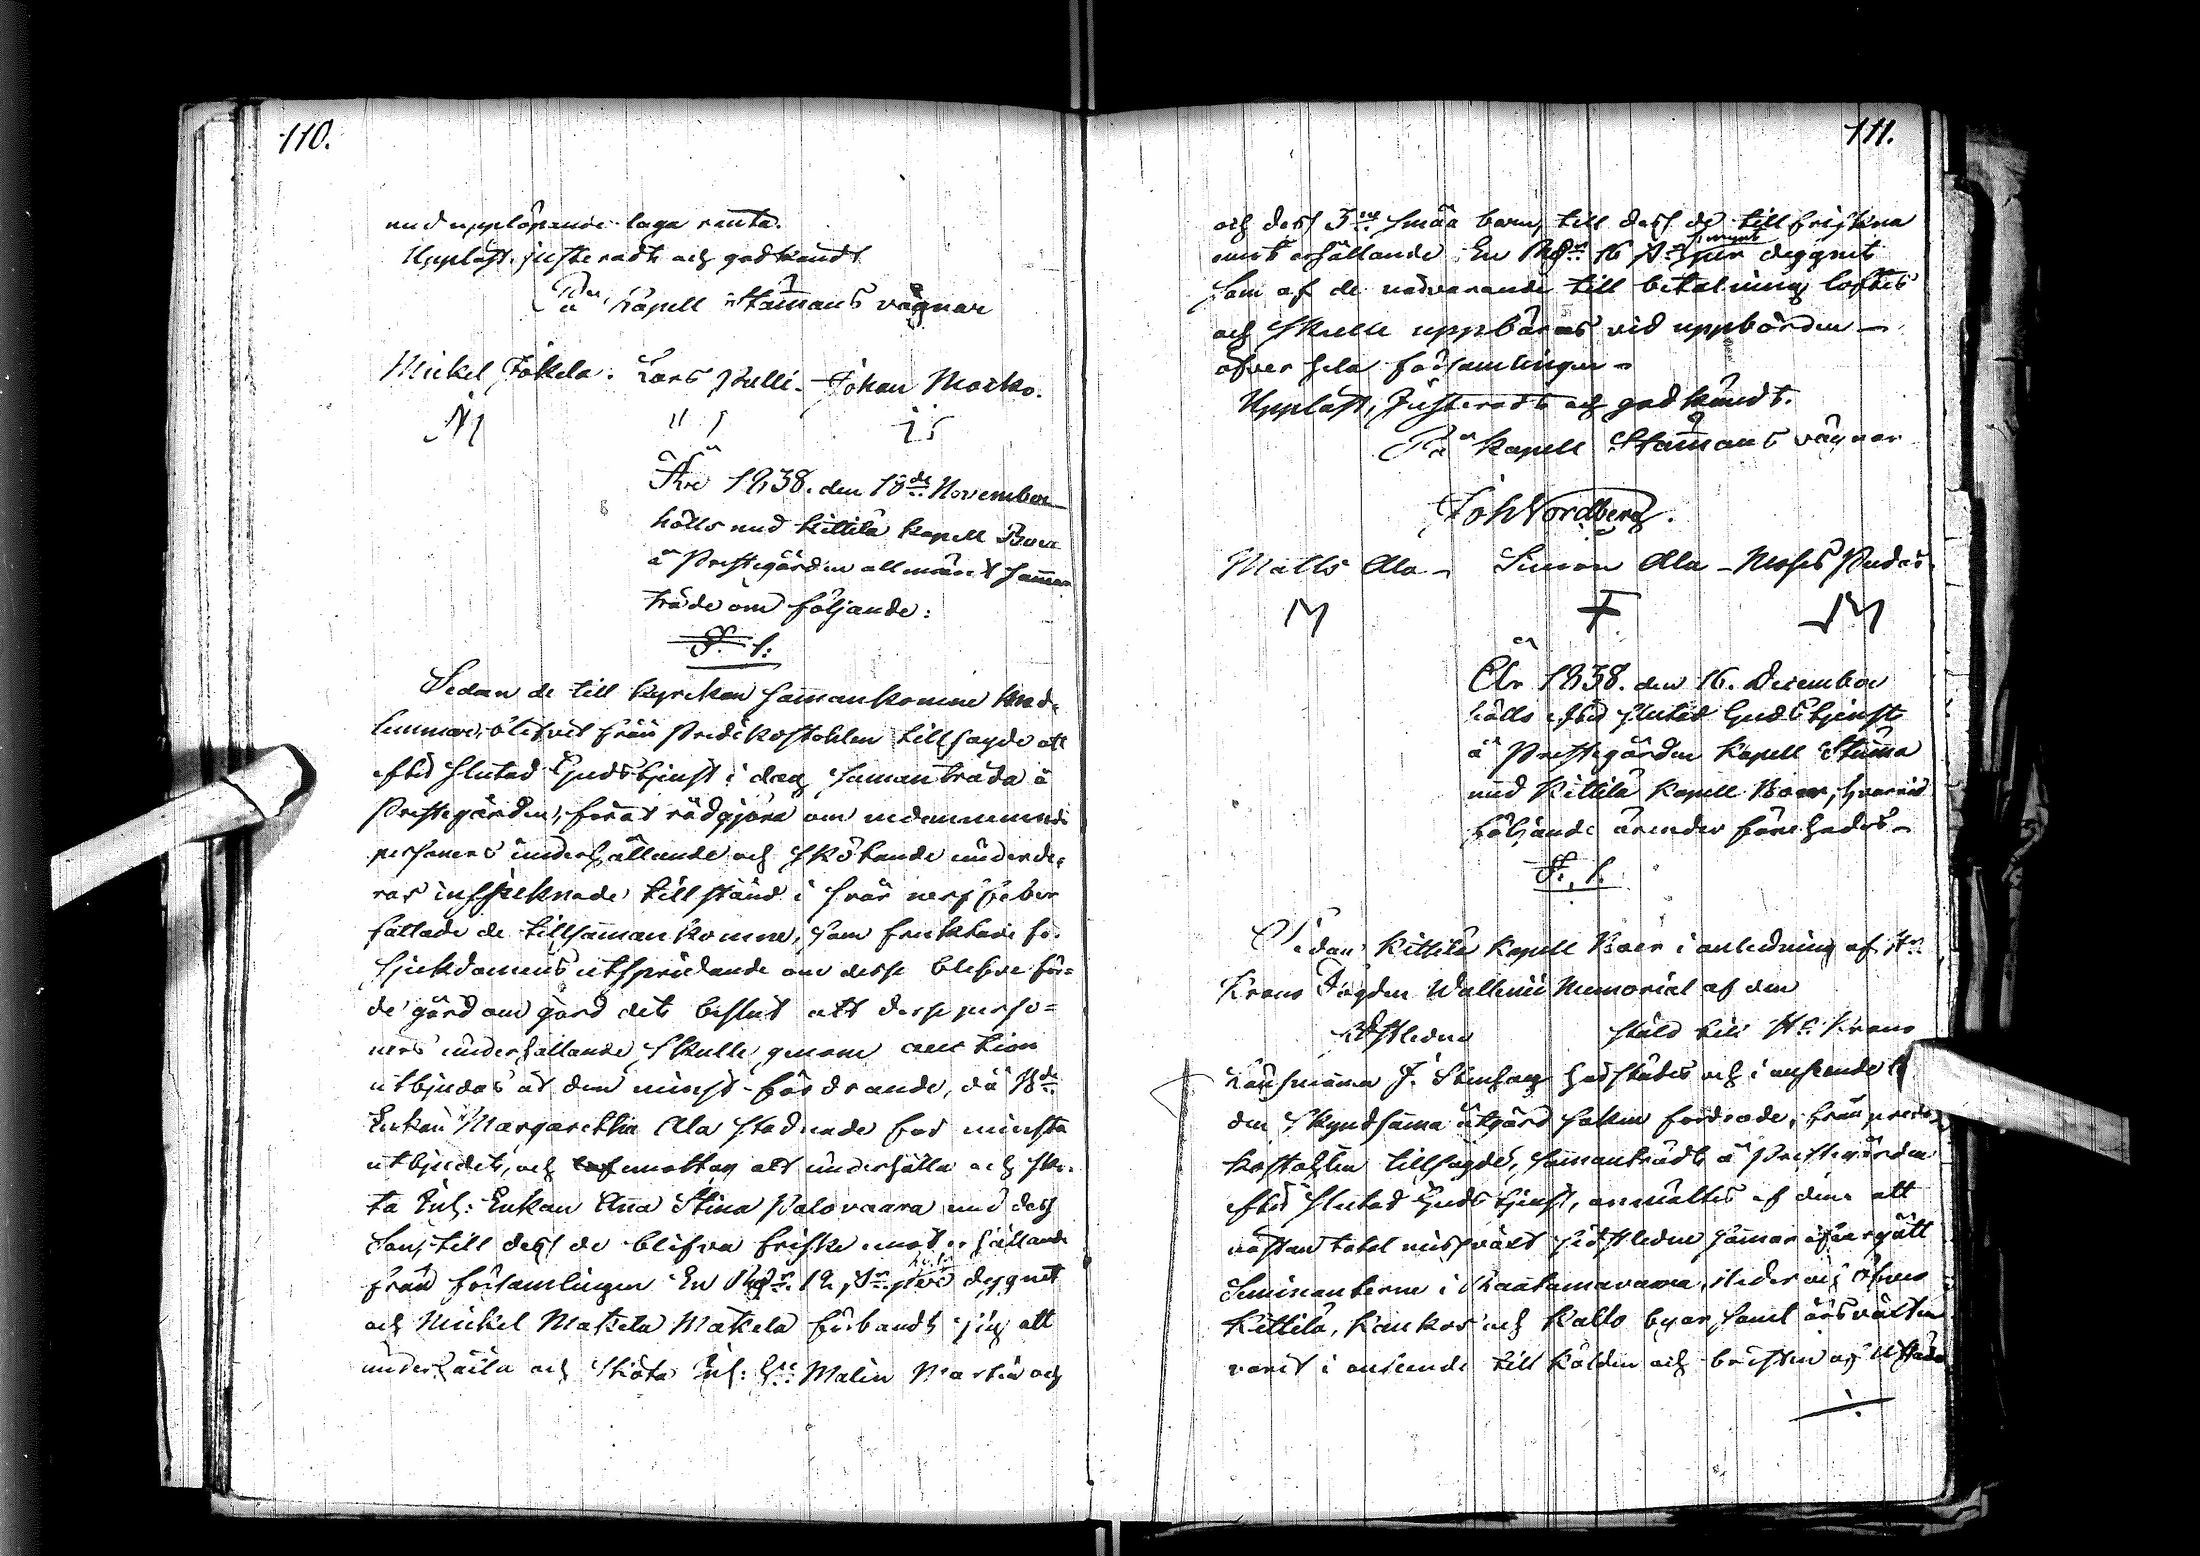 110.
med upplöpande laga ränta.
Uppläst, justeradt och godkändt
På Kapell Stämmans vägnar
Mickel Jokela. Lars Pulli. Johan Marko.
År 1838. den 18de November
hölls med Kittilä Kapell Boer
å Prestegården allmänt samman
träde om följande:
§. 1:
Sedan de till kyrkan sammankomne
blifvit från Predikostohlen tillsagde att
efter slutad Gudstjenst i dag sammanträda å
Prestegården, för at rådgjöra om nedannämnde
personers underhållande och skötande under de-
ras insjuknade tillstånd i svår nerffeber
fattade de tillsammankomne, som fruktade för
sjukdomens utspridande om desse blefve för-
de gård om gård det beslut att desse perso-
ners underhållande skulle genom auction
utbjudas åt den minst fordrande, då Bde
Enkan Margaretha Ala stadnade för minsta
utbjudet, och emottog att underhålla och skö-
ta Inh: Enkan Anna Stina Palovaara med dess
Son, till dess de blifva friske emot erhållande
från församlingen En Rd 12 per dygnet
och Mickel Matela Makela förbandt sig att
underhålla och sköta Inh: Malin Martin och
111.
och dess 3ne små barn, till dess de tillfriskna
emot erhållande En Rd 16 per dygnet
som af de närvarande till betalning loftes
och skulle uppbäras vid uppbörden
öfver hela församlingen
Uppläst, Justeradt och godkändt.
På Kapell Stämmans vägnar
Joh Nordberg.
Matts Ala Simon Ala Moses Pudas
År 1838. den 16. December
hölls efter slutad Gudstjenst
å Prestegården Kapell Stämma
med Kittilä Kapell Boer, hvarvid
följande ärender förehades
§. 1.
Sedan Kittilä Kapell Boer i anledning af Hr
Krono Fogden Wallenii Memorial af den
sistledne stäld till Hr Krono
Länsmannen J. härstädes och i anseende t
den skyndsamma åtgärd saken fordrade, från predi
kostohlen tillsagde, sammanträdt å Prestegården
efter slutad Gudstjenst, anmältes af dem att
nästan total missväxt sistledne sommar öfvergått
Hemmanterne i Kaukonen och Öfver
Kittilä, Kaukos och Kallo byar, samt årsväxten
varit i anseende till kölden och bristen af